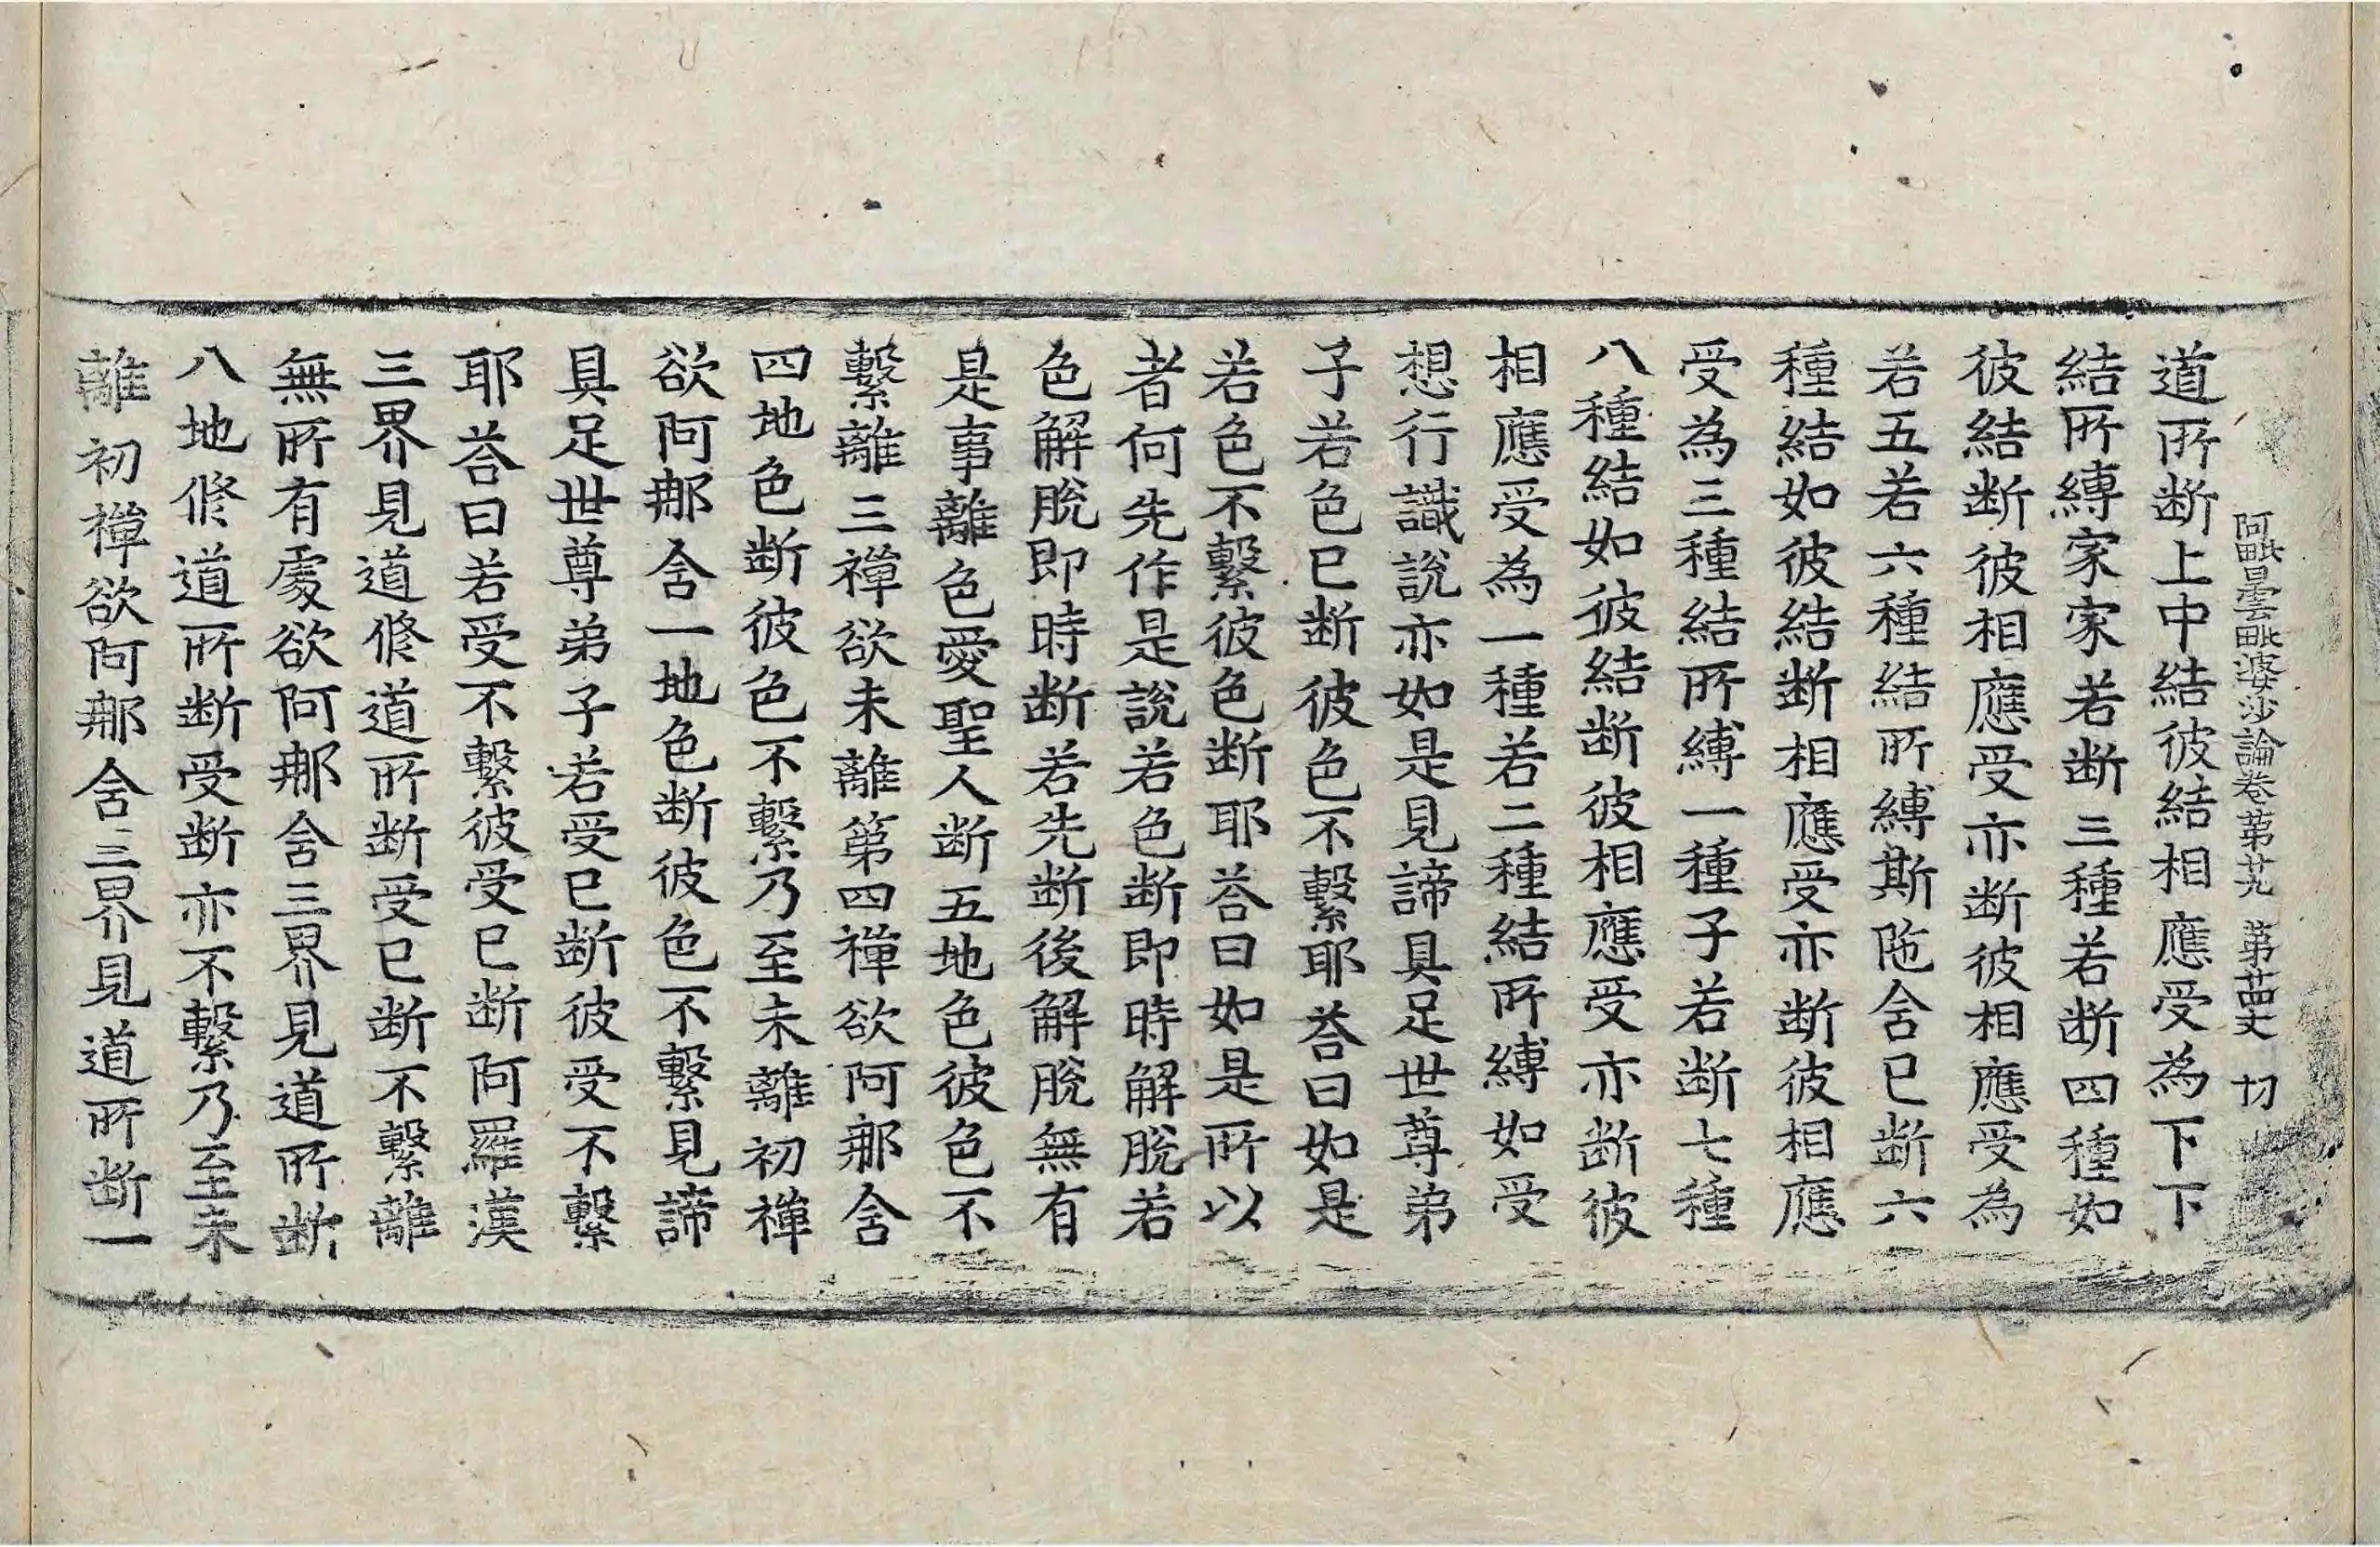 阿毗曇毗婆沙論卷第廿九 第廿四丈 切
道所断上中結彼結相應受為下下
結所縛家家若断三種若断四種如
彼結断彼相應受亦断彼相應受為
若五若六種結所縛斯陁含已断六
種結如彼結断相應受亦断彼相應
受為三種結所縛一種子若断七種
八種結如彼結断彼相應受亦断彼
相應受為一種若二種結所縛如受
想行識說亦如是見諦具足世尊弟
子若色已断彼色不繫耶荅曰如是
若色不繫彼色断耶荅曰如是所以
者何先作是說若色断即時解脫若
色解脫即時断若先断後解脫無有
是事離色愛聖人断五地色彼色不
繫離三禪欲未離第四禪欲阿那含
四地色断彼色不繫乃至未離初禪
欲阿那含一地色断彼色不繫見諦
具足世尊弟子若受已断彼受不繫
耶荅曰若受不繫彼受已断阿羅漢
三界見道修道所断受已断不繫離
無所有處欲阿那含三界見道所断
八地修道所断受断亦不繫乃至未
離初禪欲阿那含三界見道所断一